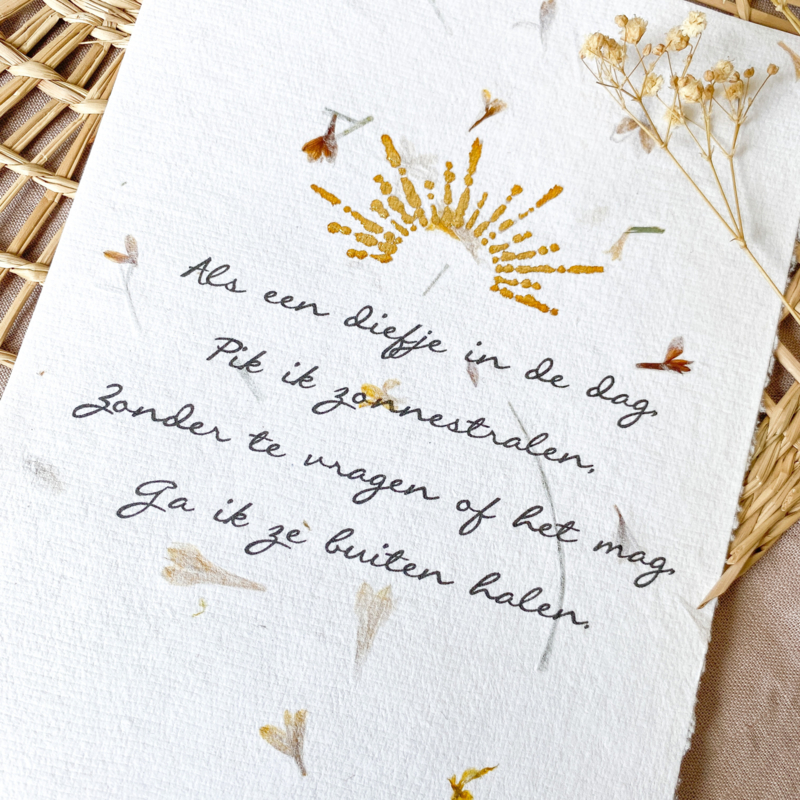 Als een diefje in de dag,
Pik ik zonnestralen,
Zonder te vragen of het mag,
Ga ik ze buiten halen.